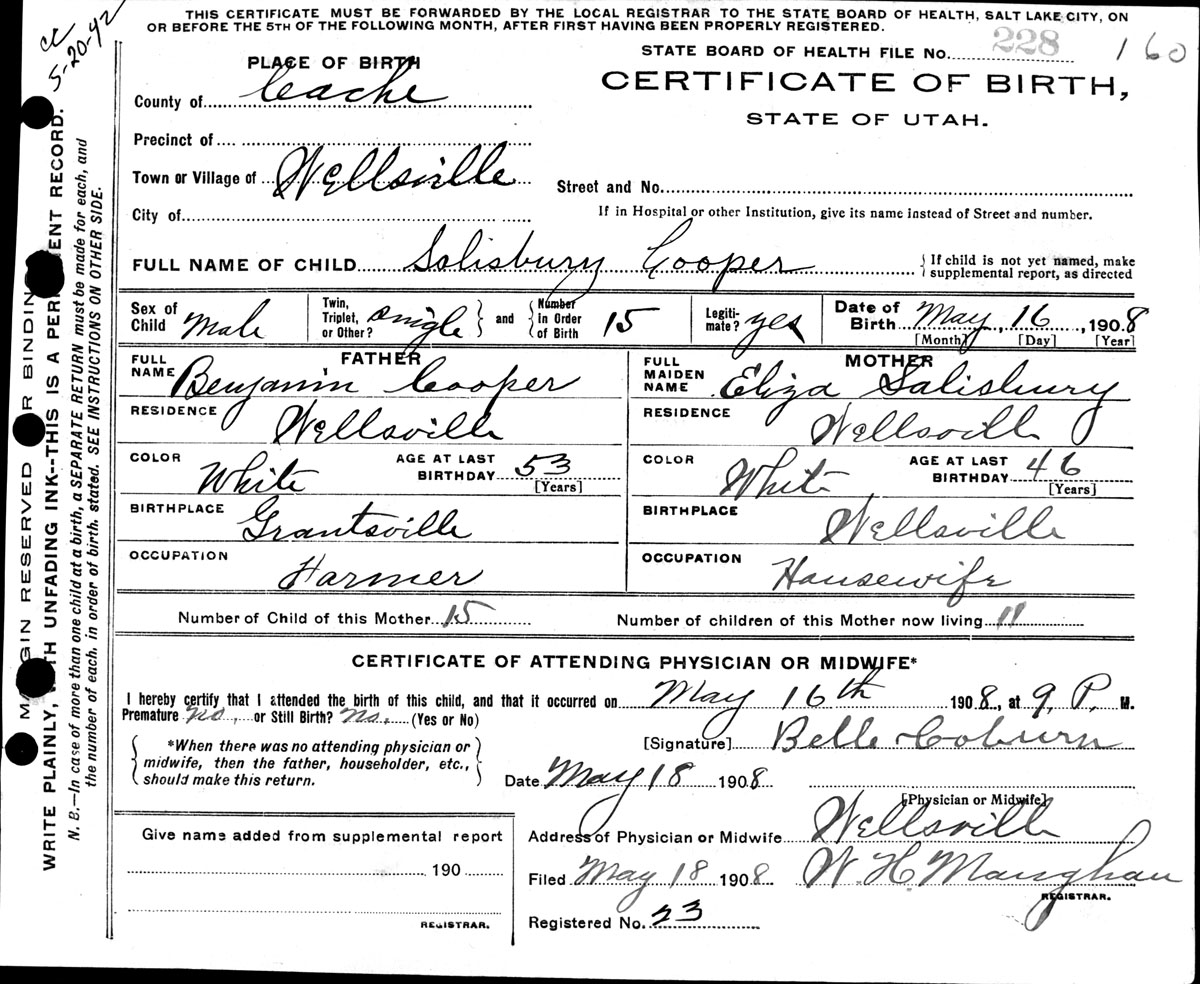 THIS CERTIFICATE MUST BE FORWARDED BY THE LOCAL REGISTRAR TO THE STATE BOARD OF HEALTH, SALT LAKE CITY, ON
OR BEFORE THE 5TH OF THE FOLLOWING MONTH, AFTER FIRST HAVING BEEN PROPERLY REGISTERED.
5-20-42
STATE BOARD OF HEALTH FILE No. 228 160
PLACE OF BIRTH
CERTIFICATE OF BIRTH,
County of Cache
STATE OF UTAH.
Precinct of
Town or Village of Wellsville
Street and No.
City of
If in Hospital or other Institution, give its name instead of Street and number.
FULL NAME OF CHILD Salisbury Cooper { If child is not yet named, make
supplemental report, as directed
Sex of Child Male Twin, Triplet, or Other? single } and { Number In Order of Birth 15 Legiti-mate? yes Date of Birth May, 16, 1908
[Month] [Day] [Year]
FATHER MOTHER
FULL NAME Benjamin Cooper FULL MAIDEN NAME Eliza Salisbury
RESIDENCE Wellsville RESIDENCE Wellsville
COLOR White AGE AT LAST BIRTHDAY 53 [Years] COLOR White AGE AT LAST BIRTHDAY 46 [Years]
BIRTHPLACE Grantsville BIRTHPLACE Wellsville
OCCUPATION Farmer OCCUPATION Housewife
Number of Child of this Mother 15 Number of children of this Mother now living 11
CERTIFICATE OF ATTENDING PHYSICIAN OR MIDWIFE*
I hereby certify that I attended the birth of this child, and that it occurred on May 16th 1908, at 9, P. M.
Premature no, or Still Birth? No. (Yes or No)
{ *When there was no attending physician or
midwife, then the father, householder, etc.,
should make this return. }
[Signature] Belle Coburn
Date May 18 1908
[Physician or Midwife]
Give name added from supplemental report
190
REGISTRAR.
Address of Physician or Midwife Wellsville
Filed May 18 1908 W H Maughan
REGISTRAR.
Registered No. 23
MARGIN RESERVED FOR BINDING
WRITE PLAINLY, WITH UNFADING INK--THIS IS A PERMANENT RECORD.
N. B.—In case of more than one child at a birth, a SEPARATE RETURN must be made for each, and
the number of each, in order of birth, stated. SEE INSTRUCTIONS ON OTHER SIDE.